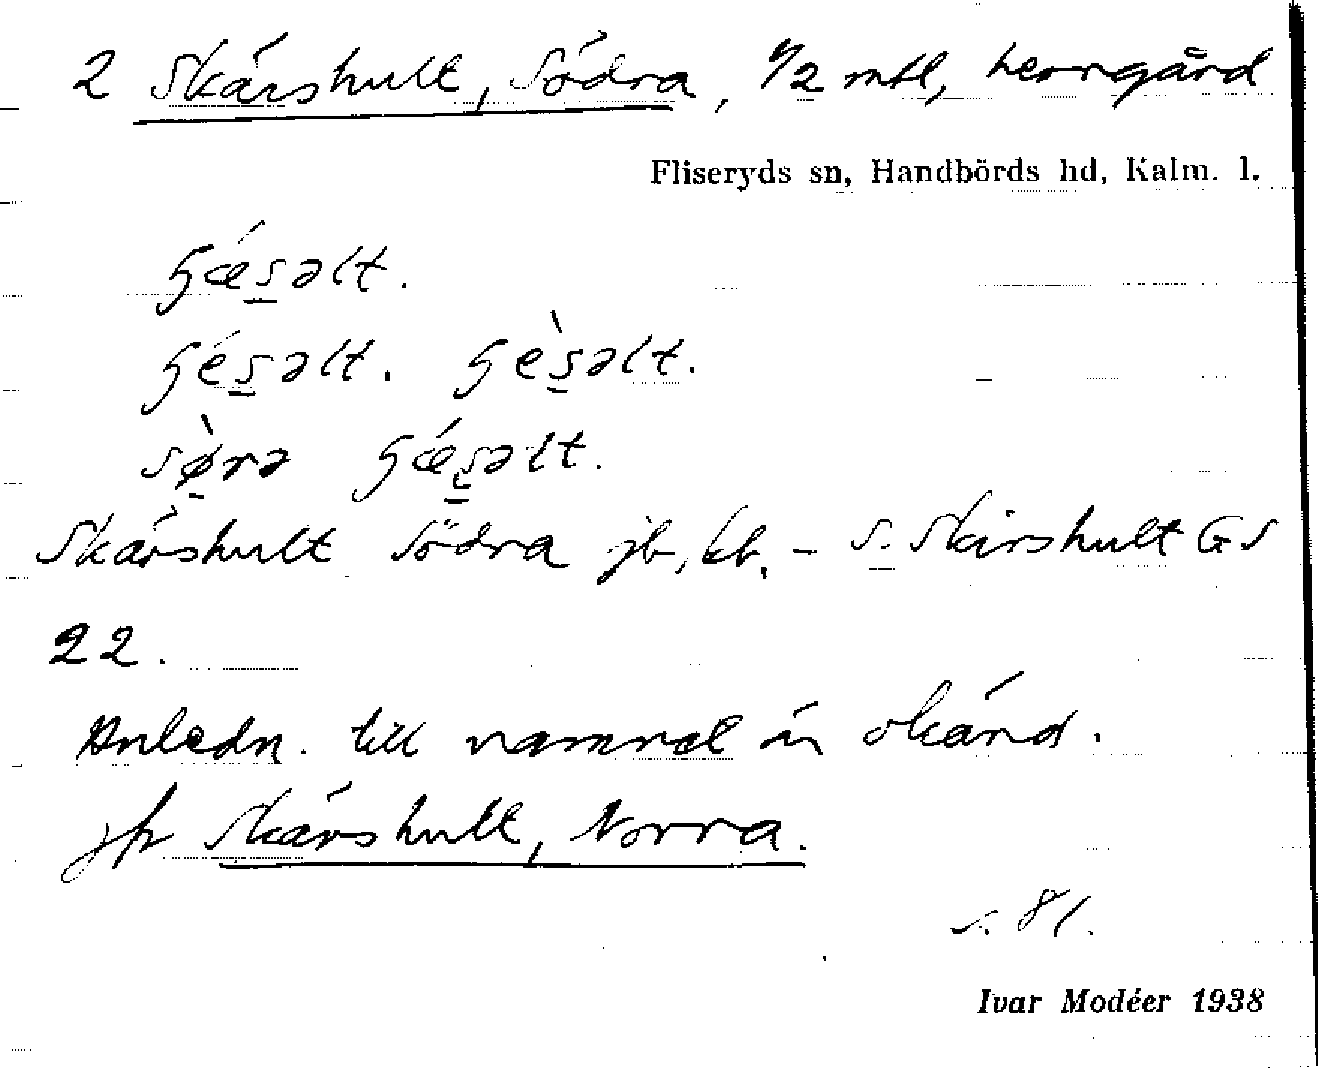 2 Skärshult, Södra, 1/2 mtl, herrgård
Fliseryds sn, Handbörds hd, Kalm. l.
ɧǽs̠əlt.
ɧés̠əlt. ɧès̠əlt.
sø̠̀rə ɧǽs̠əlt.
Skärshult Södra jb, kb, – S. Skärshult GS
22.
Anledn. till namnet är okänd.
jfr Skärshult, Norra.
s. 81.
Ivar Modéer 1938